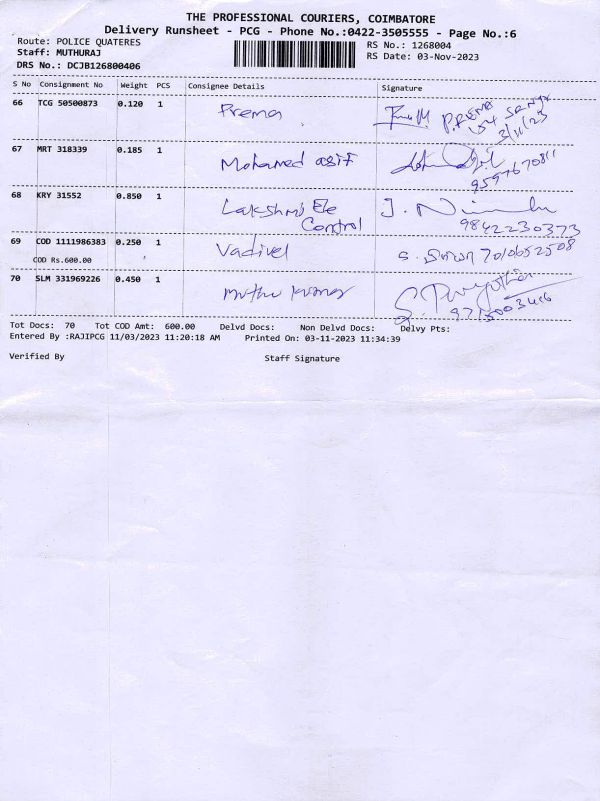 THE PROFESSIONAL COURIERS, COIMBATORE
Delivery Runsheet - PCG - Phone No.:0422-3505555 - Page No.:6
Route: POLICE QUATERES
Staff: MUTHURAJ
DRS No.: DCJB126800406
RS No.: 1268004
RS Date: 03-Nov-2023
S No Consignment No Weight PCS Consignee Details Signature
66 TCG 50500873 0.120 1 Prema P.REMA
3/11/23
67 MRT 318339 0.185 1 Mohamed asif
9597670811
68 KRY 31552 0.850 1 Lakshmi Ele
Control
9842230373
69 COD 1111986383 0.250 1 Vadivel S. 7010652508
COD Rs.600.00
70 SLM 331969226 0.450 1 Muthu Kumar
9715003416
Tot Docs: 70 Tot COD Amt: 600.00 Delvd Docs: Non Delvd Docs: Delvy Pts:
Entered By :RAJIPCG 11/03/2023 11:20:18 AM Printed On: 03-11-2023 11:34:39
Verified By Staff Signature